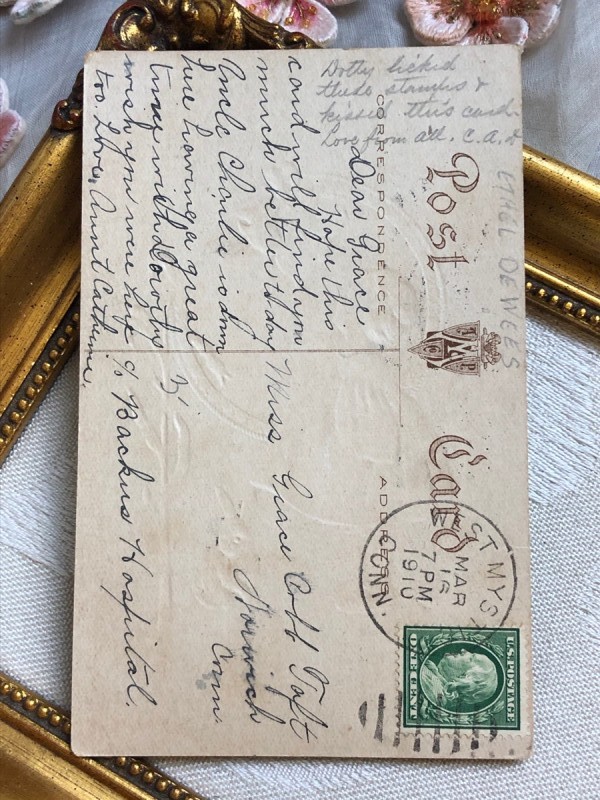 Post Card
CORRESPONDENCE
ADDRESS
Dotty licked
these stamps &
kissed this card.
Love from all. C.A.D
ETHEL DEWEES
Dear Grace
Hope this
card will find you
much better today
Uncle Charlie is down
here having a great
time with Dorothy
wish you were here
too Love, Aunt Catherine.
Miss Grace Cobb Taft
Norwich
Conn
c/o Backus Hospital.
MYS
MAR
16
7 PM
1910
CONN.
U.S. POSTAGE
ONE CENT